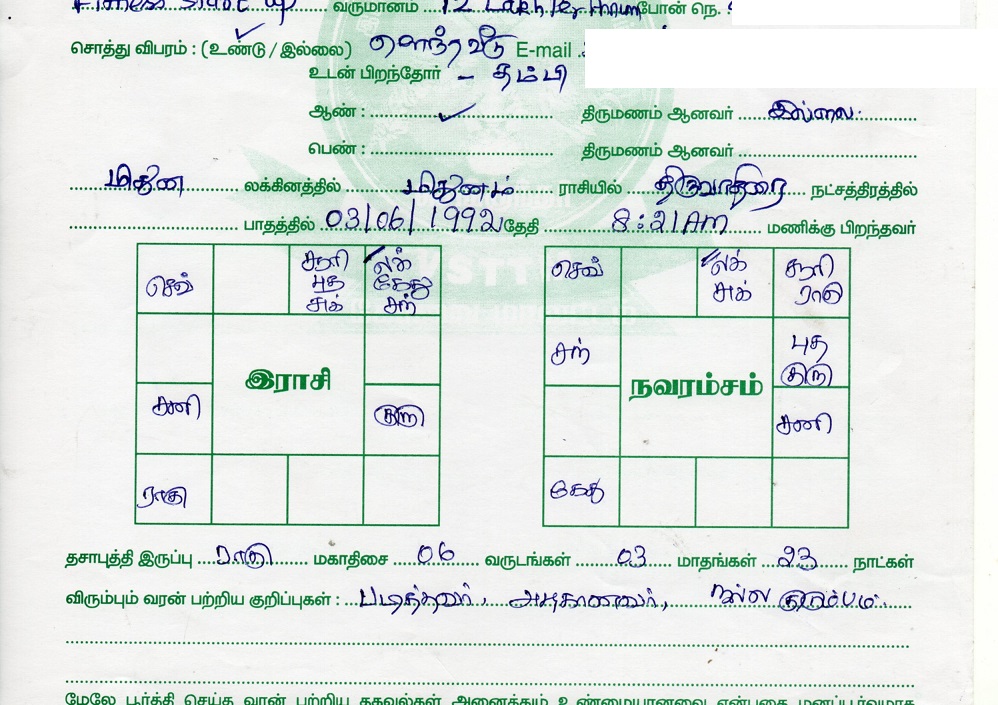 Fitness Start up வருமானம் 12 Lakh Per Anum போன் நெ.
சொத்து விபரம் : (உண்டு / இல்லை) சொந்தவீடு E-mail
உடன் பிறந்தோர் - தம்பி
ஆண் : ✓ திருமணம் ஆனவர் இல்லை.
பெண் : திருமணம் ஆனவர்
மிதுன லக்கினத்தில் மிதுனம் ராசியில் திருவாதிரை நட்சத்திரத்தில்
பாதத்தில் 03/06/1992 தேதி 8:21AM மணிக்கு பிறந்தவர்
செவ் சூரி லக் செவ் லக் சூரி
புத கேது சுக் ராகு
சுக் சந்
சந் புத
குரு
இராசி நவரம்சம்
சனி குரு சனி
ராகு கேது
தசாபுத்தி இருப்பு ராகு மகாதிசை 06 வருடங்கள் 03 மாதங்கள் 23 நாட்கள்
விரும்பும் வரன் பற்றிய குறிப்புகள் : படித்தவர், அழகானவர், நல்ல குடும்பம்.
மேலே பூர்த்தி செய்த வரன் பற்றிய தகவல்கள் அனைத்தும் உண்மையானவை என்பதை மனப்பூர்வமாக